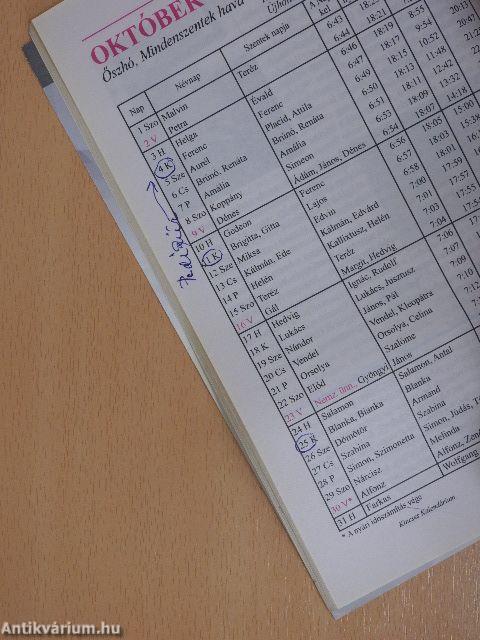 OKTÓBER
Őszhó, Mindenszentek hava
Nap Névnap Szentek napja
1 Szo Malvin Teréz 6:43
2 V Petra 6:44 18:21 8:55
3 H Helga Évald 6:46 18:19 9:54
4 K Ferenc Ferenc 6:47 18:17 10:52
5 Sze Aurél Placid, Attila 6:49 18:15 11:48
6 Cs Brúnó, Renáta Brúnó, Renáta 6:50 18:13 12:42
7 P Amália Amália 6:51 18:11 13:32
8 Szo Koppány Simeon 6:53 18:09 14:18
9 V Dénes Ádám, János, Dénes 6:54 18:07 15:00
10 H Gedeon Ferenc 6:56 18:05 15:38
11 K Brigitta, Gitta Lajos 6:57 18:03
12 Sze Miksa Edvin 6:58 18:01
13 Cs Kálmán, Ede Kálmán, Edvárd 7:00 17:59
14 P Helén Kallixtusz, Helén 7:01 17:57
15 Szo Teréz Teréz 7:03 17:55
16 V Gál Margit, Hedvig 7:04
17 H Hedvig Ignác, Rudolf 7:06
18 K Lukács Lukács, Jusztusz 7:07
19 Sze Nándor János, Pál 7:09
20 Cs Vendel Vendel, Kleopátra 7:10
21 P Orsolya Orsolya, Celina 7:12
22 Szo Előd Szalóme
23 V Nemz. ünn., Gyöngyi János
24 H Salamon Salamon, Antal
25 K Blanka, Bianka Blanka
26 Sze Dömötör Armand
27 Cs Szabina Szabina
28 P Simon, Szimonetta Simon, Júdás,
29 Szo Nárcisz Melinda
30 V* Alfonz Alfonz,
31 H Farkas Wolfgang
* A nyári időszámítás vége
Kincses Kalendárium
Antikvárium.hu